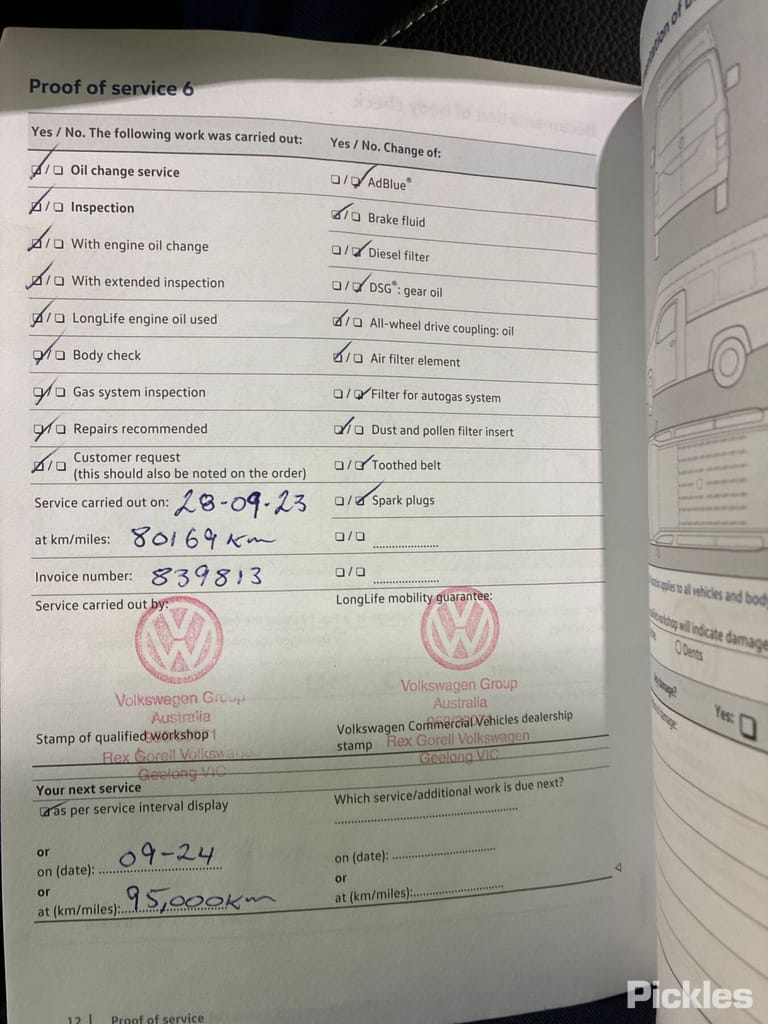 Proof of service 6
Yes / No. The following work was carried out:
Oil change service
Inspection
With engine oil change
With extended inspection
LongLife engine oil used
Body check
Gas system inspection
Repairs recommended
Customer request
(this should also be noted on the order)
Service carried out on: 28-09-23
at km/miles: 80169 km
Invoice number: 839813
Service carried out by:
Volkswagen Group
Australia
Stamp of qualified workshop
Rex Gorell Volkswagen
Geelong VIC
Yes / No. Change of:
AdBlue®
Brake fluid
Diesel filter
DSG®: gear oil
All-wheel drive coupling: oil
Air filter element
Filter for autogas system
Dust and pollen filter insert
Toothed belt
Spark plugs
LongLife mobility guarantee:
Volkswagen Group
Australia
Volkswagen Commercial Vehicles dealership
stamp
Rex Gorell Volkswagen
Geelong VIC
Your next service
as per service interval display
or
on (date): 09-24
or
at (km/miles): 95,000km
Which service/additional work is due next?
on (date):
or
at (km/miles):
12 | Proof of service
applies to all vehicles and body
workshop will indicate damage
Dents
damage?
Yes:
damage:
Pickles